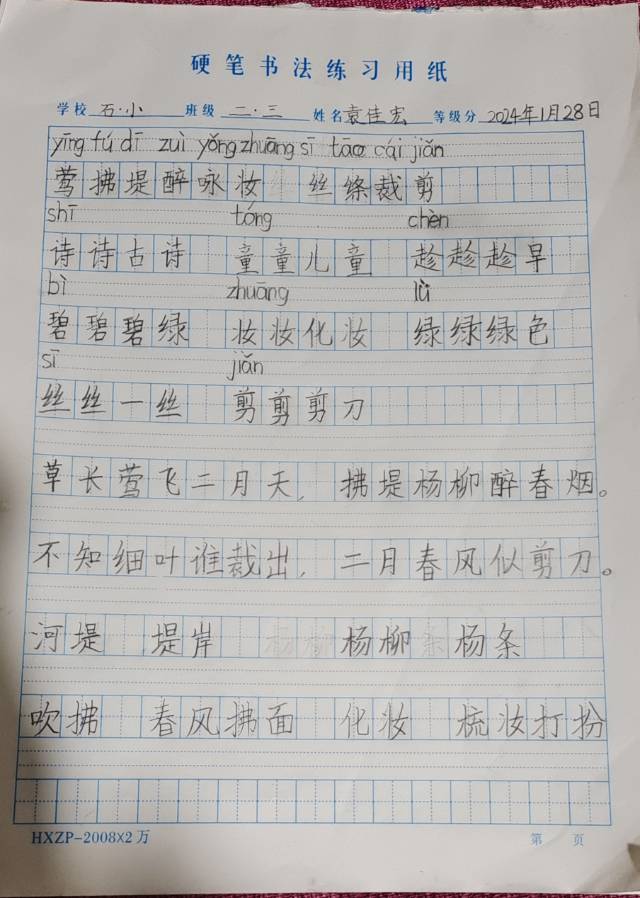 硬笔书法练习用纸
学校 石·小 班级 二·三 姓名 袁佳宏 等级分 2024年1月28日
yīng fú dī zuì yǒng zhuāng sī tāo cái jiǎn
莺拂堤醉咏妆 丝绦裁剪
shī tóng chèn
诗诗古诗 童童儿童 趁趁趁早
bì zhuāng lǜ
碧碧碧绿 妆妆化妆 绿绿绿色
sī jiǎn
丝丝一丝 剪剪剪刀
草长莺飞二月天，拂堤杨柳醉春烟。
不知细叶谁裁出，二月春风似剪刀。
河堤 堤岸 杨柳 杨条
吹拂 春风拂面 化妆 梳妆打扮
HXZP-2008×2万 第 页